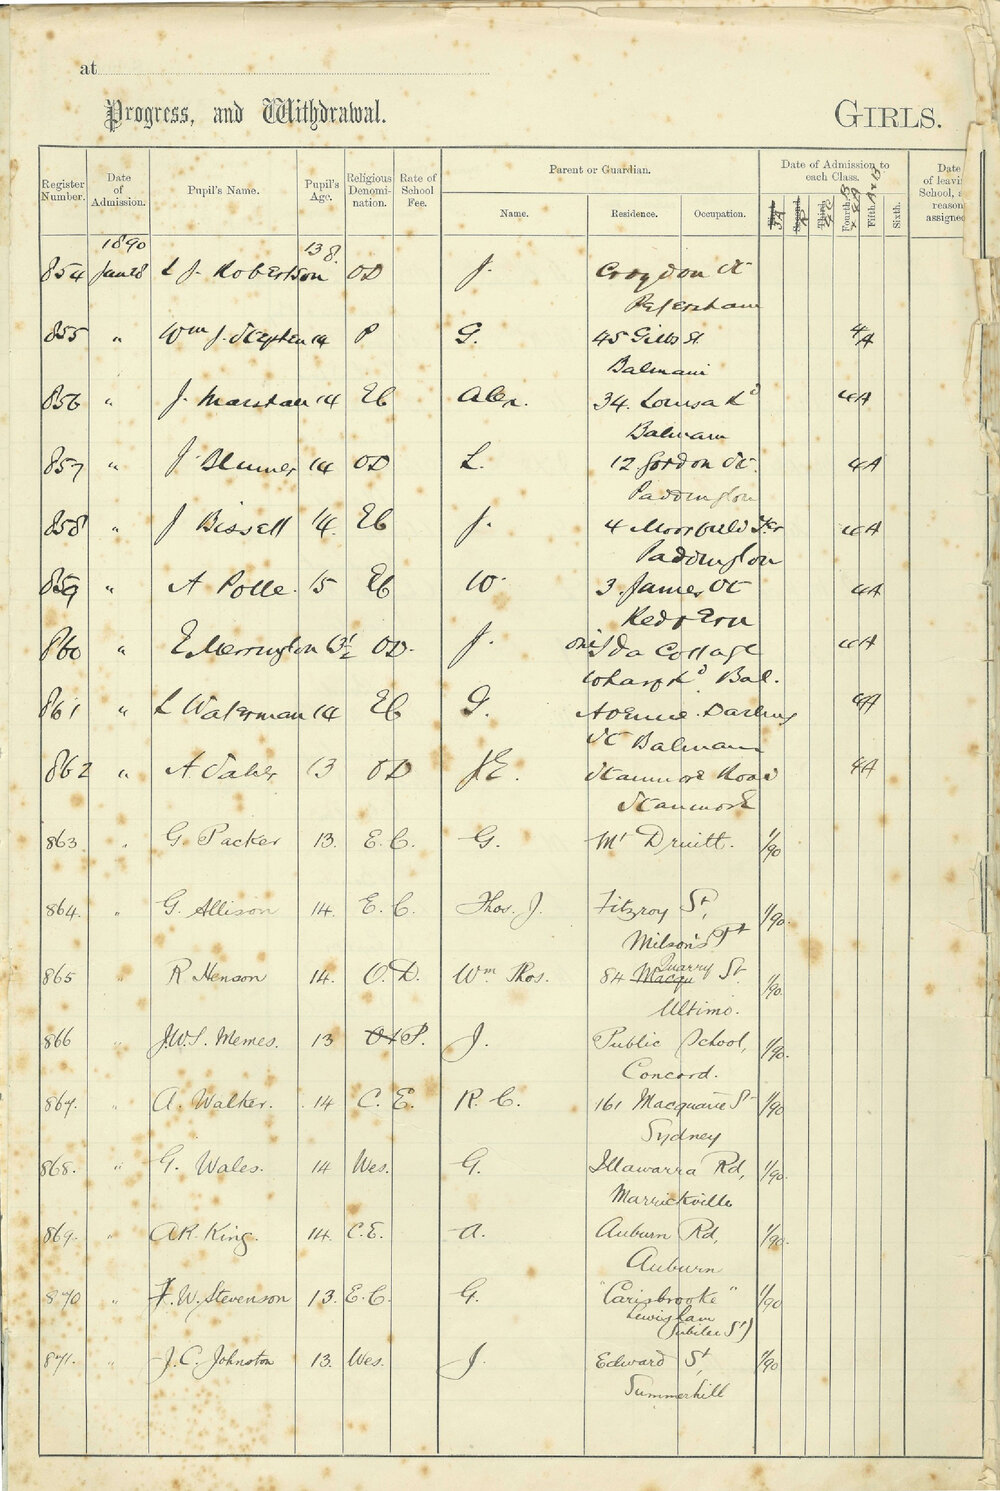 at
Progress, and Withdrawal. GIRLS.
Register Number. Date of Admission. Pupil's Name. Pupil's Age. Religious Denomi-nation. Rate of School Fee. Parent or Guardian. Name. Residence. Occupation. Date of Admission to each Class. Fourth Fifth Sixth. Date of leavi School, a reason assigned
1890 13 8.
854 Jan 28 L J. Robertson OD J. Croydon St
Petersham
855 " Wm J. Stephen 14 P G. 45 Gibbs St 4A
Balmain
856 " J. Marshall 14 EC Alex. 34. Louisa Rd 4A
Balmain
857 " J Blumer 14 OD L. 12 Gordon St. 4A
Paddington
858 " J Bissell 14. EC J. 4 Moorfield Ter 4A
Paddington
859 " A Polle. 15 EC W. 3. James St 4A
Redfern
860 " E Merrington 13½ OD. J. Ida Cottage 4A
Wharf Rd Bal.
861 " L Waterman 14 EC G. Avenue. Darling 4A
St Balmain
862 " A Saker 13 OD J E. Stanmore Road 4A
Stanmore
863. " G. Packer 13. E. C. G. Mt Druitt. 1/90
864. " G. Allison 14. E. C. Thos. J. Fitzroy St, 1/90.
Milson's Pt
865 " R Henson 14. O. D. Wm Thos. 84 Macqu Quarry St. 1/90.
Ultimo.
866 " J.W.S. Memes. 13 P. J. Public School, 1/90.
Concord.
867. " A. Walker. 14 C. E. R. C. 161 Macquarie St 1/90
Sydney
868. " G. Wales. 14 Wes. G. Illawarra Rd, 1/90.
Marrickville
869. " A R. King. 14. C. E. A. Auburn Rd, 1/90.
Auburn
870 " F. W. Stevenson 13. E. C. G. "Carisbrooke" 1/90
Lewisham
(Jubilee St)
871. " J. C. Johnston 13. Wes. J. Edward St, 1/90
Summerhill